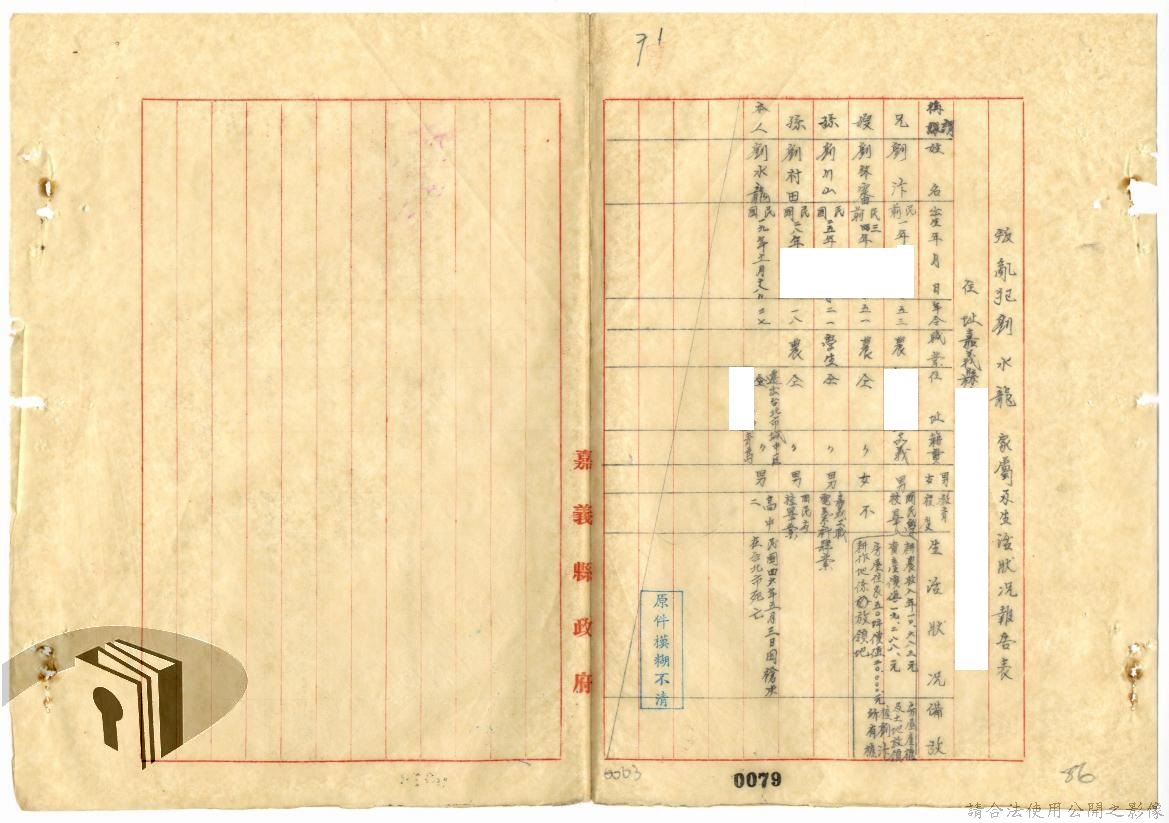 71
叛亂犯劉水龍 家屬及生活狀況報告表
住址嘉義縣
稱謂 姓名 出生年月日 年令 職業 住址 籍貫 男女 教育程度 生活狀況 備考
兄 劉汴 民前一年 五三 農 嘉義 男 國民學校畢 耕農收入年一〇、六八三元
資產價值一九、二八八、元 房屋產權及土地放領
嫂 劉 民前 四年 五一 農 仝 〃 女 不 房屋住家五〇坪價值 元
耕作地係放領地
孫 劉川山 民國二五年 二一 學生 仝 〃 男 嘉義工職電氣科肄業
孫 劉村田 民國二八年 一八 農 仝 〃 男 國民學校畢業
本人 劉水龍 民國一九年 二七 遷出台北市城中區 男 高中二 民國四六年五月三日因 在台北市死亡
原件模糊不清
嘉義縣政府
0063
0079
86
請合法使用公開之影像